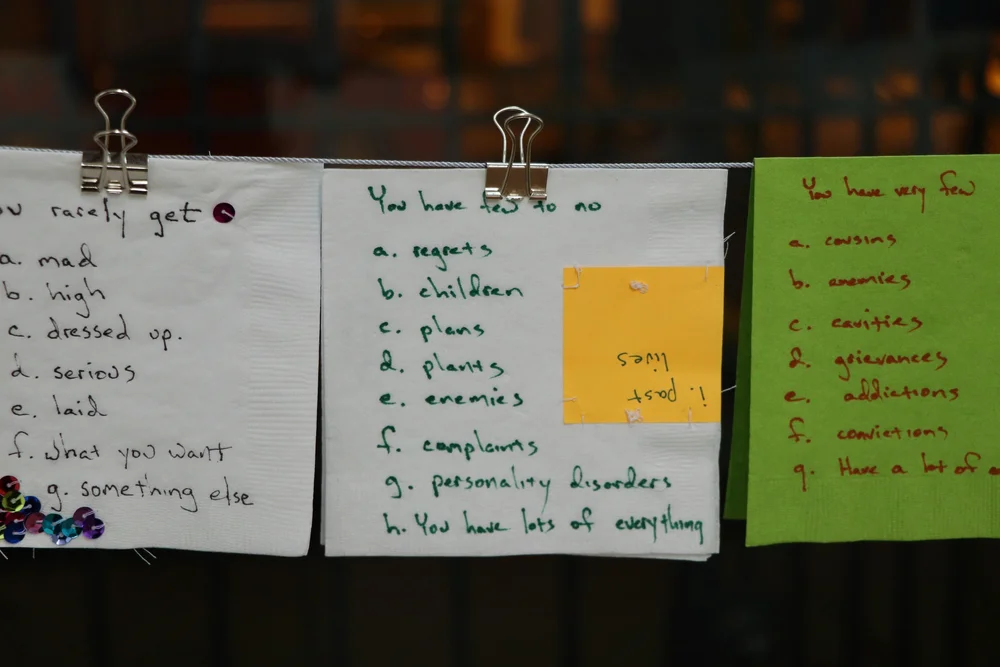 ou rarely get
a. mad
b. high
c. dressed up.
d. serious
e. laid
f. what you want
g. something else
You have few to no
a. regrets
b. children
c. plans
d. plants
e. enemies
f. complaints
g. personality disorders
h. You have lots of everything
i. past
lives
You have very few
a. cousins
b. enemies
c. cavities
d. grievances
e. addictions
f. convictions
g. Have a lot of